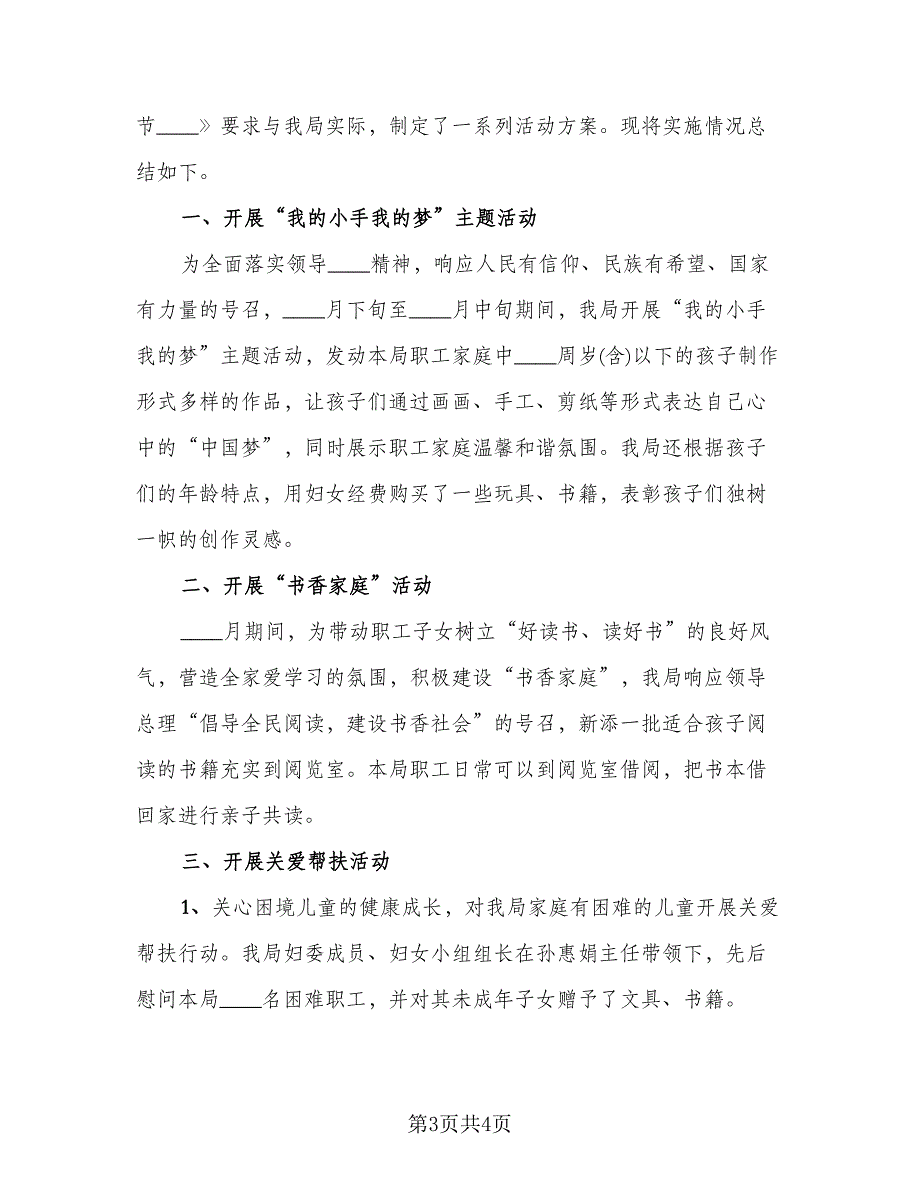 节____》要求与我局实际，制定了一系列活动方案。现将实施情况总
结如下。
一、开展“我的小手我的梦”主题活动
为全面落实领导____精神，响应人民有信仰、民族有希望、国家
有力量的号召，____月下旬至____月中旬期间，我局开展“我的小手
我的梦”主题活动，发动本局职工家庭中____周岁(含)以下的孩子制作
形式多样的作品，让孩子们通过画画、手工、剪纸等形式表达自己心
中的“中国梦”，同时展示职工家庭温馨和谐氛围。我局还根据孩子
们的年龄特点，用妇女经费购买了一些玩具、书籍，表彰孩子们独树
一帜的创作灵感。
二、开展“书香家庭”活动
____月期间，为带动职工子女树立“好读书、读好书”的良好风
气，营造全家爱学习的氛围，积极建设“书香家庭”，我局响应领导
总理“倡导全民阅读，建设书香社会”的号召，新添一批适合孩子阅
读的书籍充实到阅览室。本局职工日常可以到阅览室借阅，把书本借
回家进行亲子共读。
三、开展关爱帮扶活动
1、关心困境儿童的健康成长，对我局家庭有困难的儿童开展关爱
帮扶行动。我局妇委成员、妇女小组组长在孙惠娟主任带领下，先后
慰问本局____名困难职工，并对其未成年子女赠予了文具、书籍。
第3页共4页